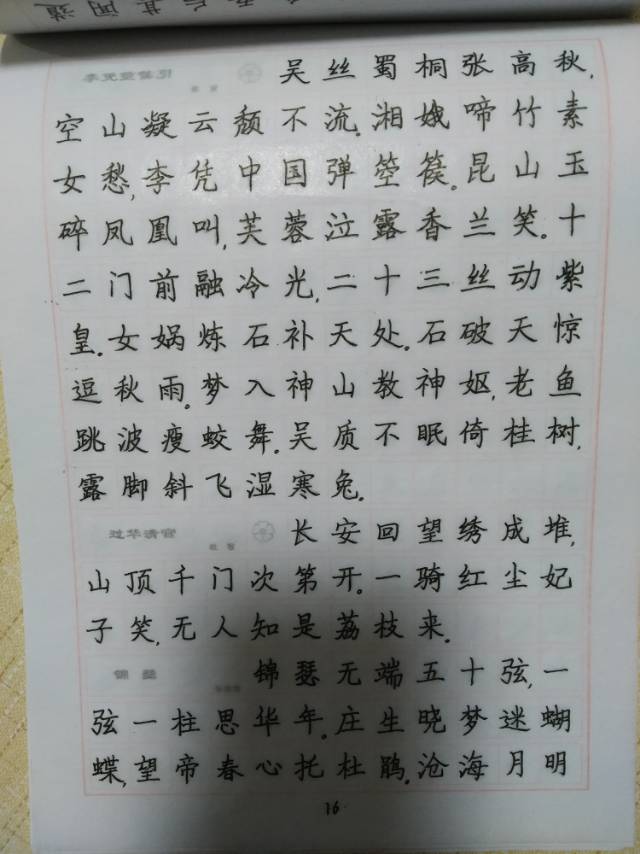 李凭箜篌引 吴丝蜀桐张高秋,
空山凝云颓不流.湘娥啼竹素
女愁,李凭中国弹箜篌.昆山玉
碎凤凰叫,芙蓉泣露香兰笑.十
二门前融冷光,二十三丝动紫
皇.女娲炼石补天处.石破天惊
逗秋雨.梦入神山教神妪,老鱼
跳波瘦蛟舞.吴质不眠倚桂树,
露脚斜飞湿寒兔.
过华清宫 长安回望绣成堆,
山顶千门次第开.一骑红尘妃
子笑,无人知是荔枝来.
锦瑟 锦瑟无端五十弦,一
弦一柱思华年.庄生晓梦迷蝴
蝶,望帝春心托杜鹃.沧海月明
16